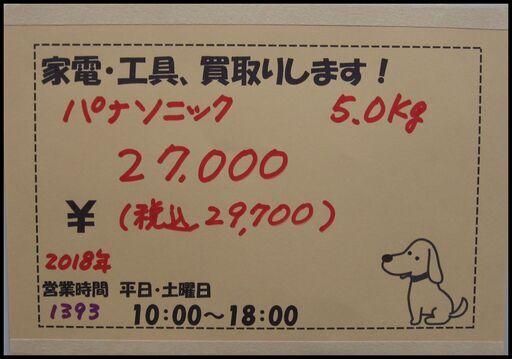 家電・工具、買取りします！
パナソニック 5.0kg
27.000
¥ (税込 29,700)
2018年
営業時間 平日・土曜日
1393 10:00～18:00